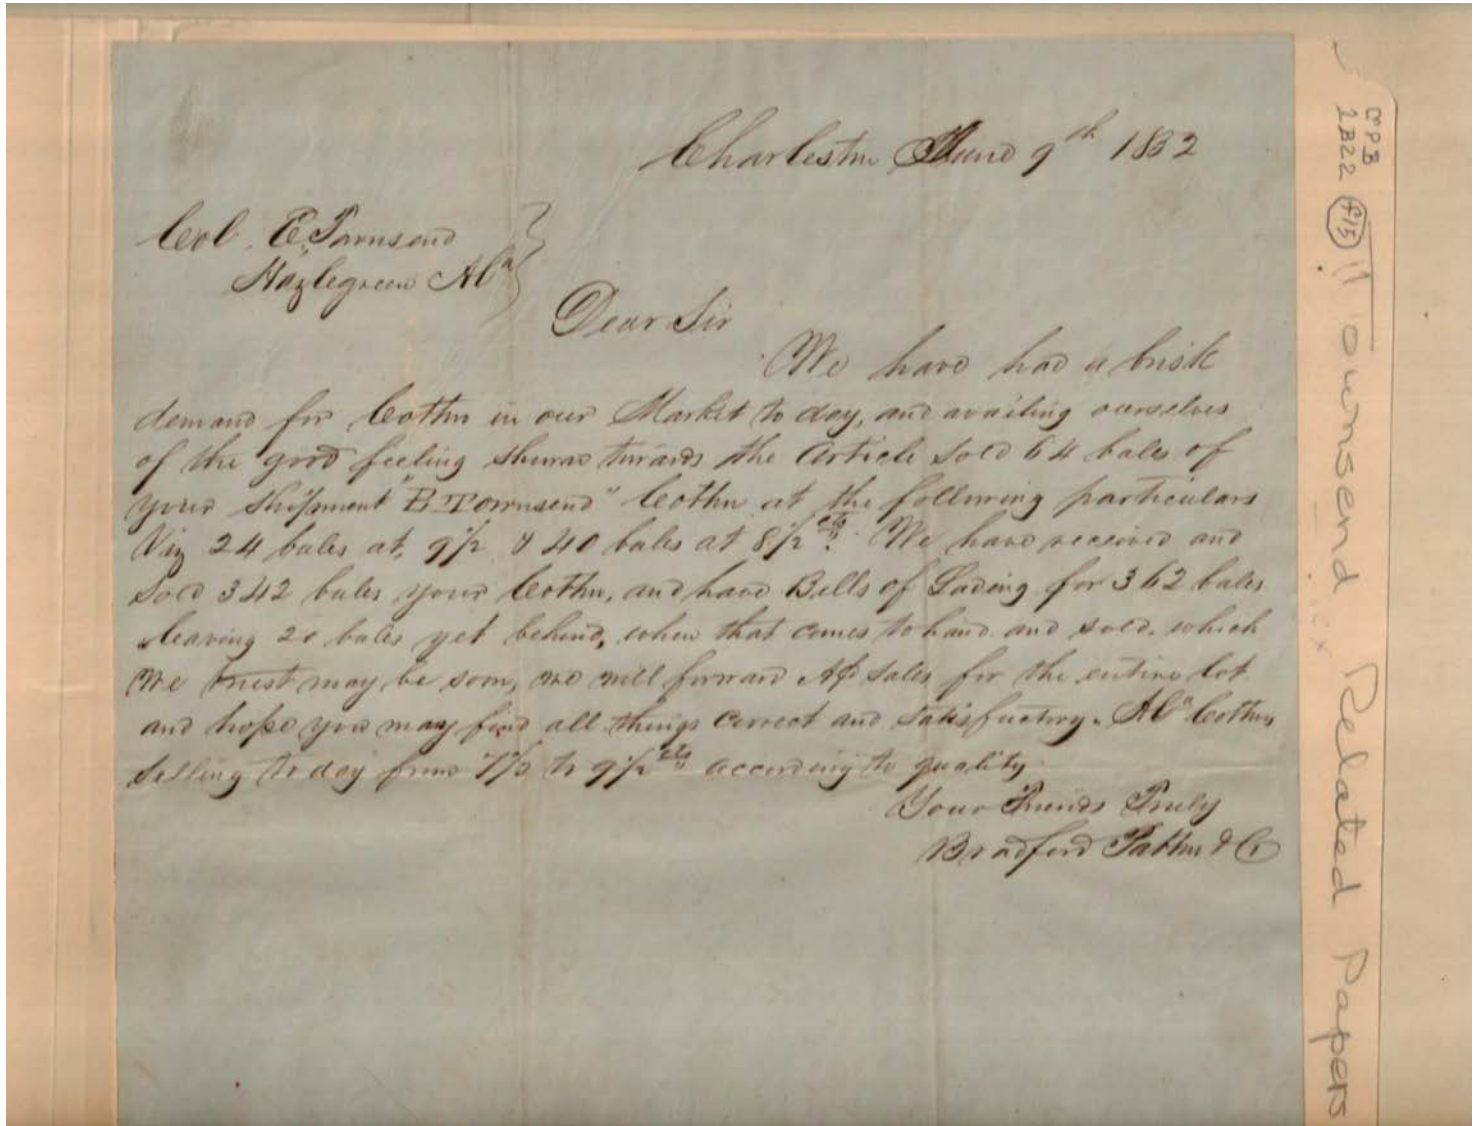 Charleston June 9th 1852
Col. E. Townsend
Hazlegreen Ala
Dear Sir
We have had a brisk
demand for Cotton in our Market to day, and availing ourselves
of the good feeling shown towards the Article sold 64 bales of
your shipment "E Townsend" Cotton at the following particulars
Viz 24 bales at 9 1/2 & 40 bales at 8 1/2 cts. We have received and
sold 342 bales your Cotton, and have Bills of Lading for 362 bales
leaving 20 bales yet behind, when that comes to hand and sold, which
we trust may be soon, we will forward A/c Sales for the entire lot
and hope you may find all things correct and satisfactory. Ala Cotton
selling to day from to 9 1/2 cts according to quality.
Your Friends Truly
Bradford Patton & Co
MPB
2B22 f15
Townsend Related Papers